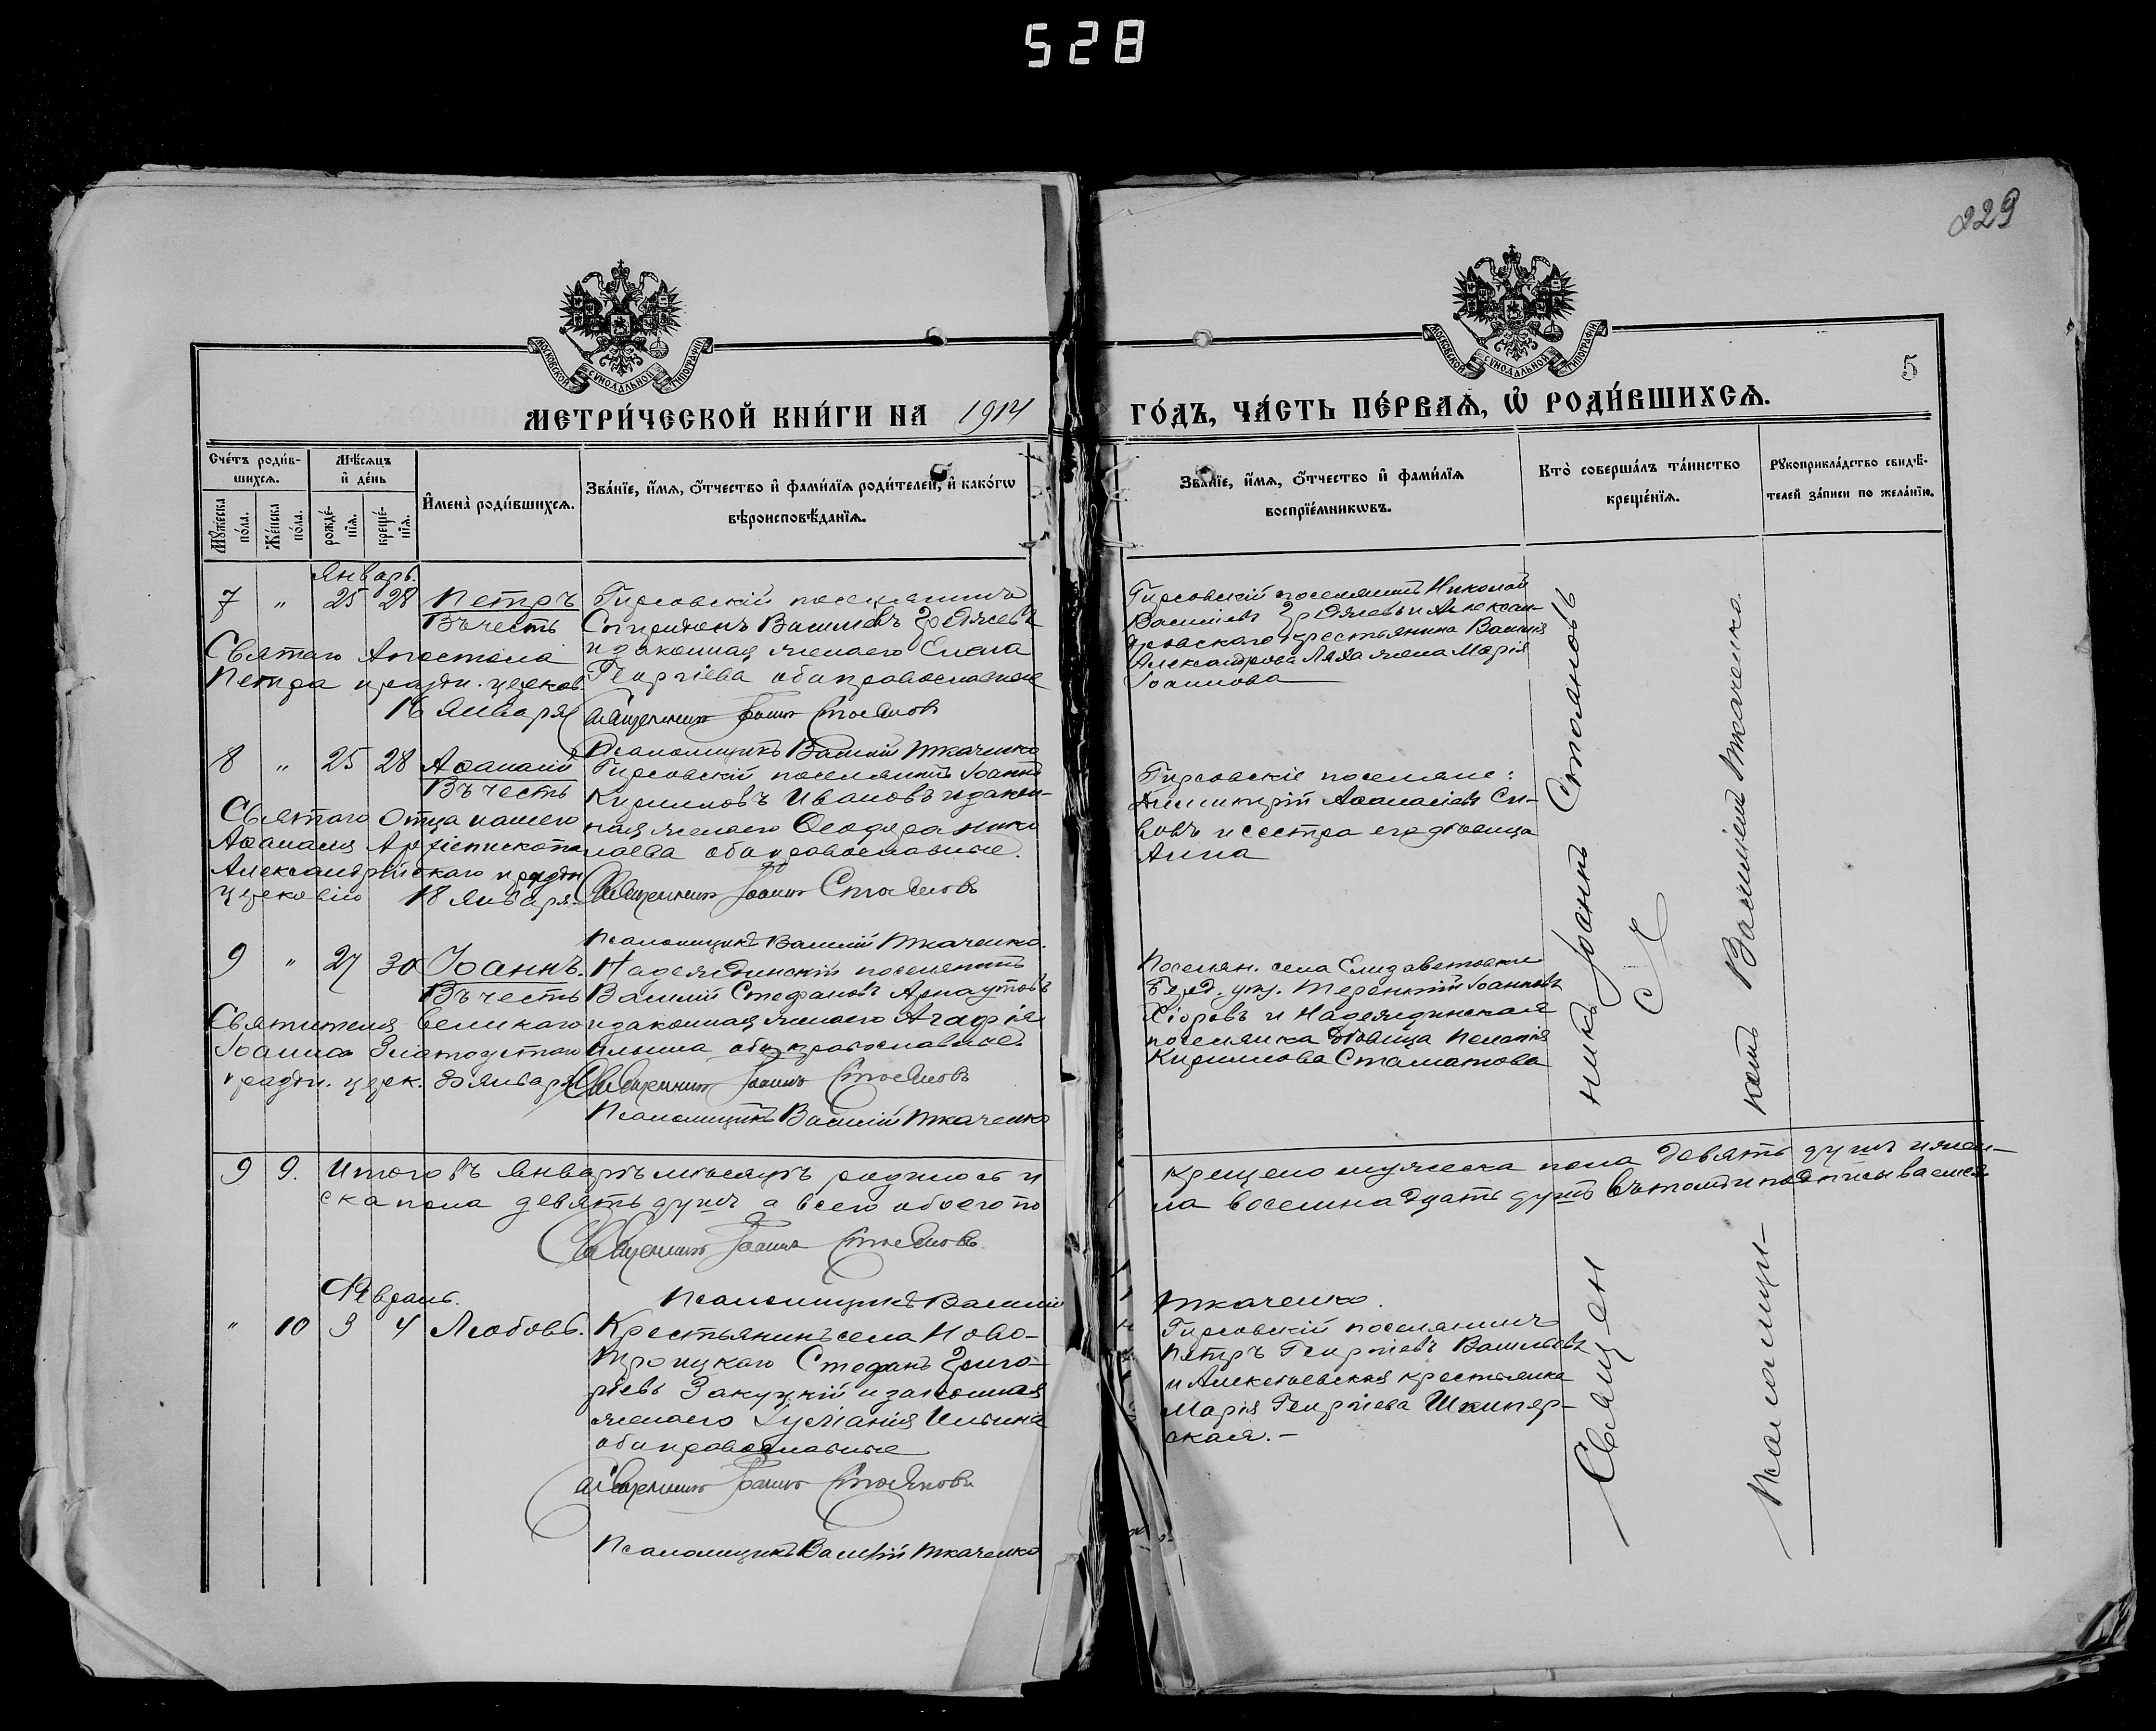 528
229
МОСКОВСКОЙ СѴНОДАЛЬНОЙ ТИПОГРАФІИ
МОСКОВСКОЙ СѴНОДАЛЬНОЙ ТИПОГРАФІИ
5
МЕТРИ́ЧЕСКОЙ КНИ́ГИ НА 1914
ГО́ДЪ, ЧА́СТЬ ПЕ́РВАѦ, Ѡ РОДИ́ВШИХСѦ.
Сче́тъ роди́в-
шихсѧ.
Мѣ́сѧцъ
и҆ де́нь
Мꙋ́жеска
по́ла.
Же́нска
по́ла.
рожде́-
нїѧ.
креще́-
нїѧ.
И҆мена̀ роди́вшихсѧ.
Зва́нїе, и҆́мѧ, ѻ҆́тчество и҆ фами́лїѧ роди́телей, и҆ како́гѡ
вѣроисповѣ́данїѧ.
Зва́нїе, и҆́мѧ, ѻ҆́тчество и҆ фами́лїѧ
воспрїе́мникѡвъ.
Кто̀ соверша́лъ та́инство
креще́нїѧ.
Рꙋкоприкла́дство свидѣ́-
телей за́писи по жела́нїю.
Январь.
7 " 25 28 Петръ
Въ честь
Святаго Апостола
Петра праздн. церков.
16 января
Гирсовскій поселянинъ
Спиридонъ Васильевъ
и законная жена его Елена
Георгіева оба православные
Священникъ Іоаннъ Стояновъ
Псаломщикъ Василій Ткаченко
Гирсовскій поселянинъ Николай
Васильевъ и Алексан-
дровскаго крестьянина Василія
Александрова жена Марія
Іоаннова
8 " 25 28 Аѳанасій
Въ честь
Святаго Отца нашего
Аѳанасія Архіепископа
Александрійскаго праздн
церковію 18 января.
Гирсовскій поселянинъ Іоаннъ
Кирилловъ Ивановъ и закон-
ная жена его Ѳеодора Нико
лаева оба православные.
Священникъ Іоаннъ Стояновъ
Псаломщикъ Василій Ткаченко.
Гирсовскіе поселяне:
Димитрій Аѳанасіевъ Си-
вовъ и сестра его дѣвица
Анна
9 " 27 30 Іоаннъ.
Въ честь
Святителя Великаго
Іоанна Златоустаго
праздн. церк. 30 января
Надеждинскій поселянинъ
Василій Стефановъ Арнаутовъ
и законная жена его Агафія
Ильина, оба православные
Священникъ Іоаннъ Стояновъ
Псаломщикъ Василій Ткаченко
Поселян. села Елизаветовки
Терентій Іоанновъ
и Надеждинская
поселянка дѣвица Пелагія
Кириллова Стаматова
9 9. Итого въ Январѣ мѣсяцѣ родилось и
крещено мужеска пола девять душъ и жен-
ска пола девять душъ а всего обоего по
ла восемнадцать душъ въ томъ и подписываемся
Священникъ Іоаннъ Стояновъ.
Псаломщикъ Василій
Ткаченко.
Февраль.
" 10 3 4 Любовь.
Крестьянинъ села Ново-
троицкаго Стефанъ Григо-
рьевъ Закуцкій и законная
жена его Іуліанія Ильина
оба православные
Священникъ Іоаннъ Стояновъ
Псаломщикъ Василій Ткаченко
Гирсовскій поселянинъ
Петръ Георгіевъ Васильевъ
и Алексѣевская крестьянка
Марія Георгіева Шкипер-
ская.-
Священ
никъ Іоаннъ Стояновъ
Псаломщи-
комъ Василіемъ Ткаченко.